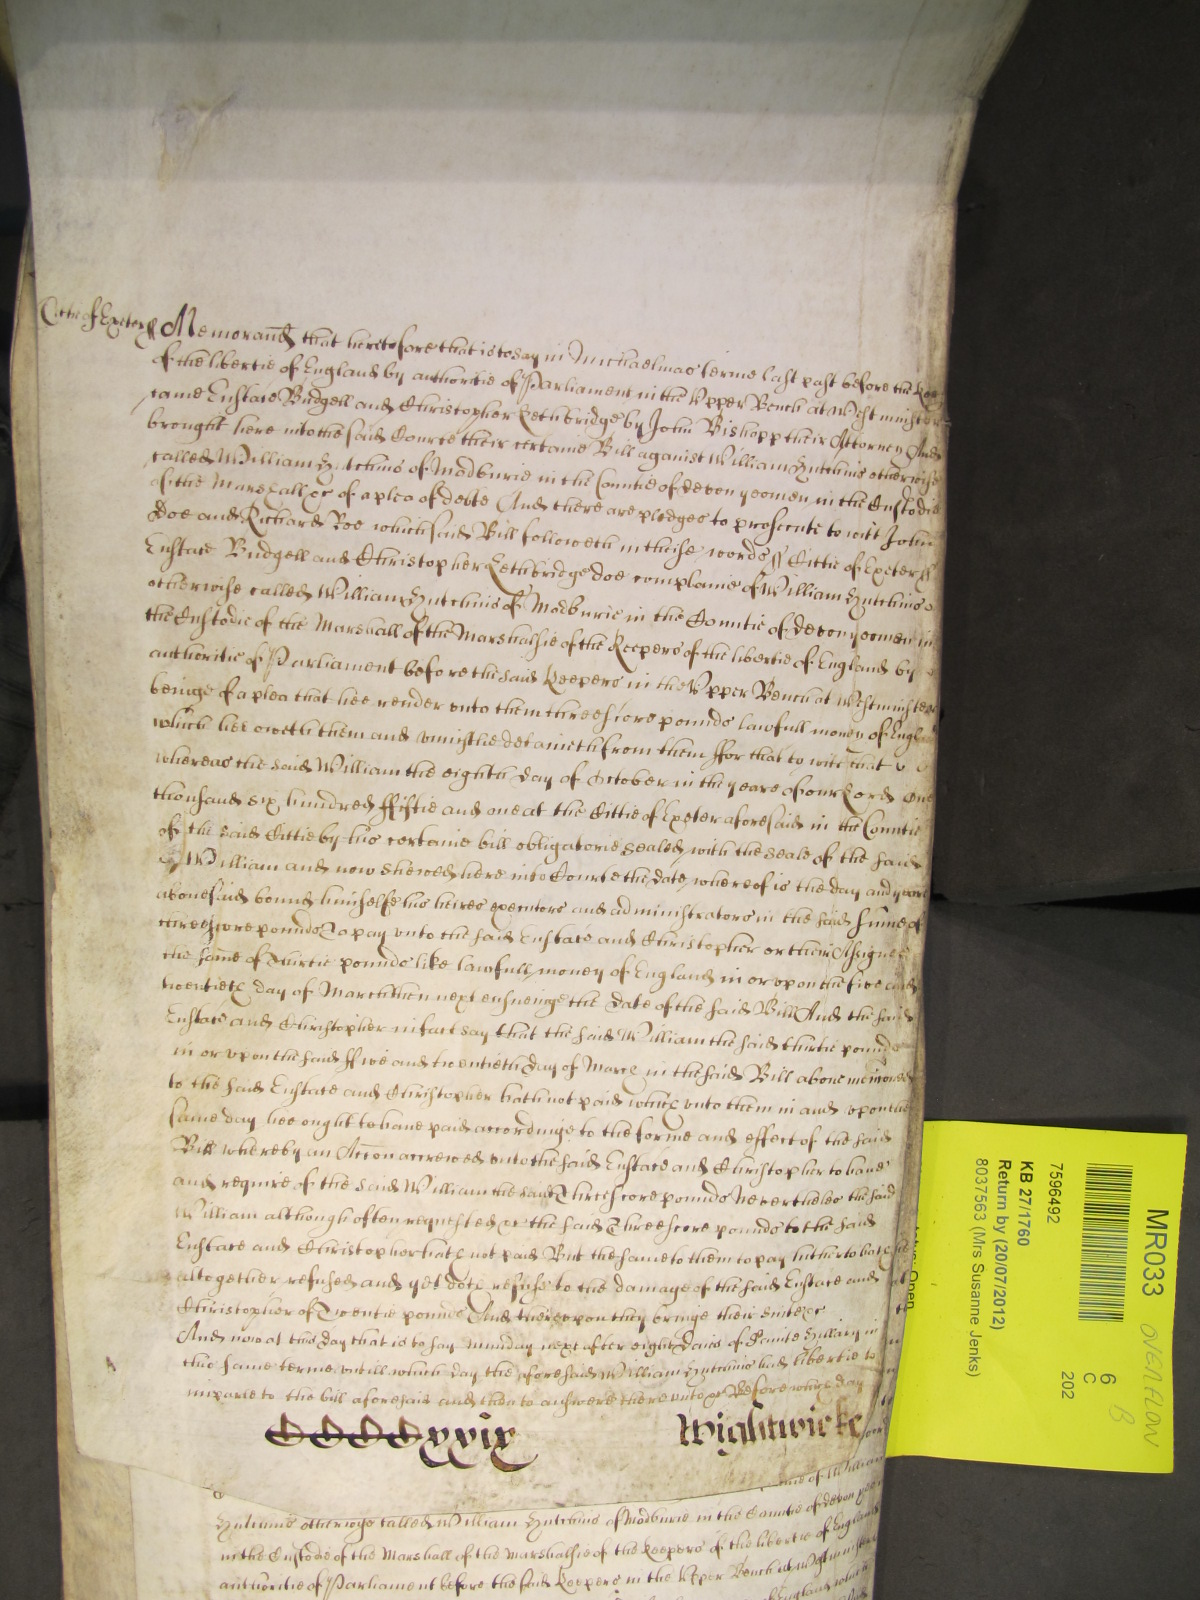 Cittie of Exeter ss Memorand that heretofore that is to say in Michaelmas terme last past before the Kee
of the libertie of England by authoritie of Parliament in the Upper Bench at Westminster
came Eustace Budgell and Christopher Lethbridge by John Bishopp their Attorney And
brought here into the said Courte their certaine Bill against William Hutchins otherwise
called William Hutchins of Modburie in the Countie of Devon yeomen in the Custodie
of the Marshall &c of a plea of debte And there are pledges to prosecute to witt John
Doe and Richard Roe which said Bill followeth in theise words ss Cittie of Exeter ss
Eustace Budgell and Christopher Lethbridge doe complaine of William Hutchins
otherwise called William Hutchins of Modburie in the Countie of Devon yeomen in
the Custodie of the Marshall of the Marshalsie of the Keepers of the libertie of England by
authoritie of Parliament before the said Keepers in the Upper Bench at Westminster
beinge of a plea that hee render unto them threescore pounds lawfull money of Engla
which hee oweth them and uniustlie detaineth from them ffor that to witt that
whereas the said William the eighth day of October in the yeare of our Lord One
thousand six hundred ffiftie and one at the Cittie of Exeter aforesaid in the Countie
of the said Cittie by his certaine bill obligatorie sealed with the seale of the said
William and now shewed here into Courte the date whereof is the day and yeare
abovesaid bound himselfe his heires executors and administrators in the said summe of
threescore pounds To pay unto the said Eustace and Christopher or their Assignes
the some of Thirtie pounds like lawfull money of England in or upon the five and
twentieth day of March then next ensueinge the date of the said Bill And the said
Eustace and Christopher in fact say that the said William the said thirtie pounds
in or upon the said ffive and twentieth day of March in the said Bill above mencioned
to the said Eustace and Christopher hath not paid which unto them in and upon the
same day hee ought to have paid accordinge to the forme and effect of the said
Bill whereby an Accon accrewed unto the said Eustace and Christopher to have
and require of the said William the said Threescore pounds Neverthelesse the said
William although often requested &c the said Threescore pounds to the said
Eustace and Christopher hath not paid But the same to them to pay hitherto hath
altogether refused and yet doth refuse to the damage of the said Eustace and
Christopher of Twentie pounds And thereupon they bringe their suite &c
And now at this day that is to say munday next after eight daies of Sainte Hillary in
this same terme untill which day the aforesaid William Hutchins had libertie to
imparle to the bill aforesaid and then to answere thereunto &c Before which day
CCCCxxix Wightwicke
Hutchins otherwise called William Hutchins of Modburie in the Countie of Devon yeo
in the Custodie of the Marshall of the Marshalsie of the Keepers of the libertie of England
authoritie of Parliament before the said Keepers in the Upper Bench at Westminster
MR033 OVERFLOW
B
6
C
202
7596492
KB 27/1760
Return by (20/07/2012)
8037563 (Mrs Susanne Jenks)